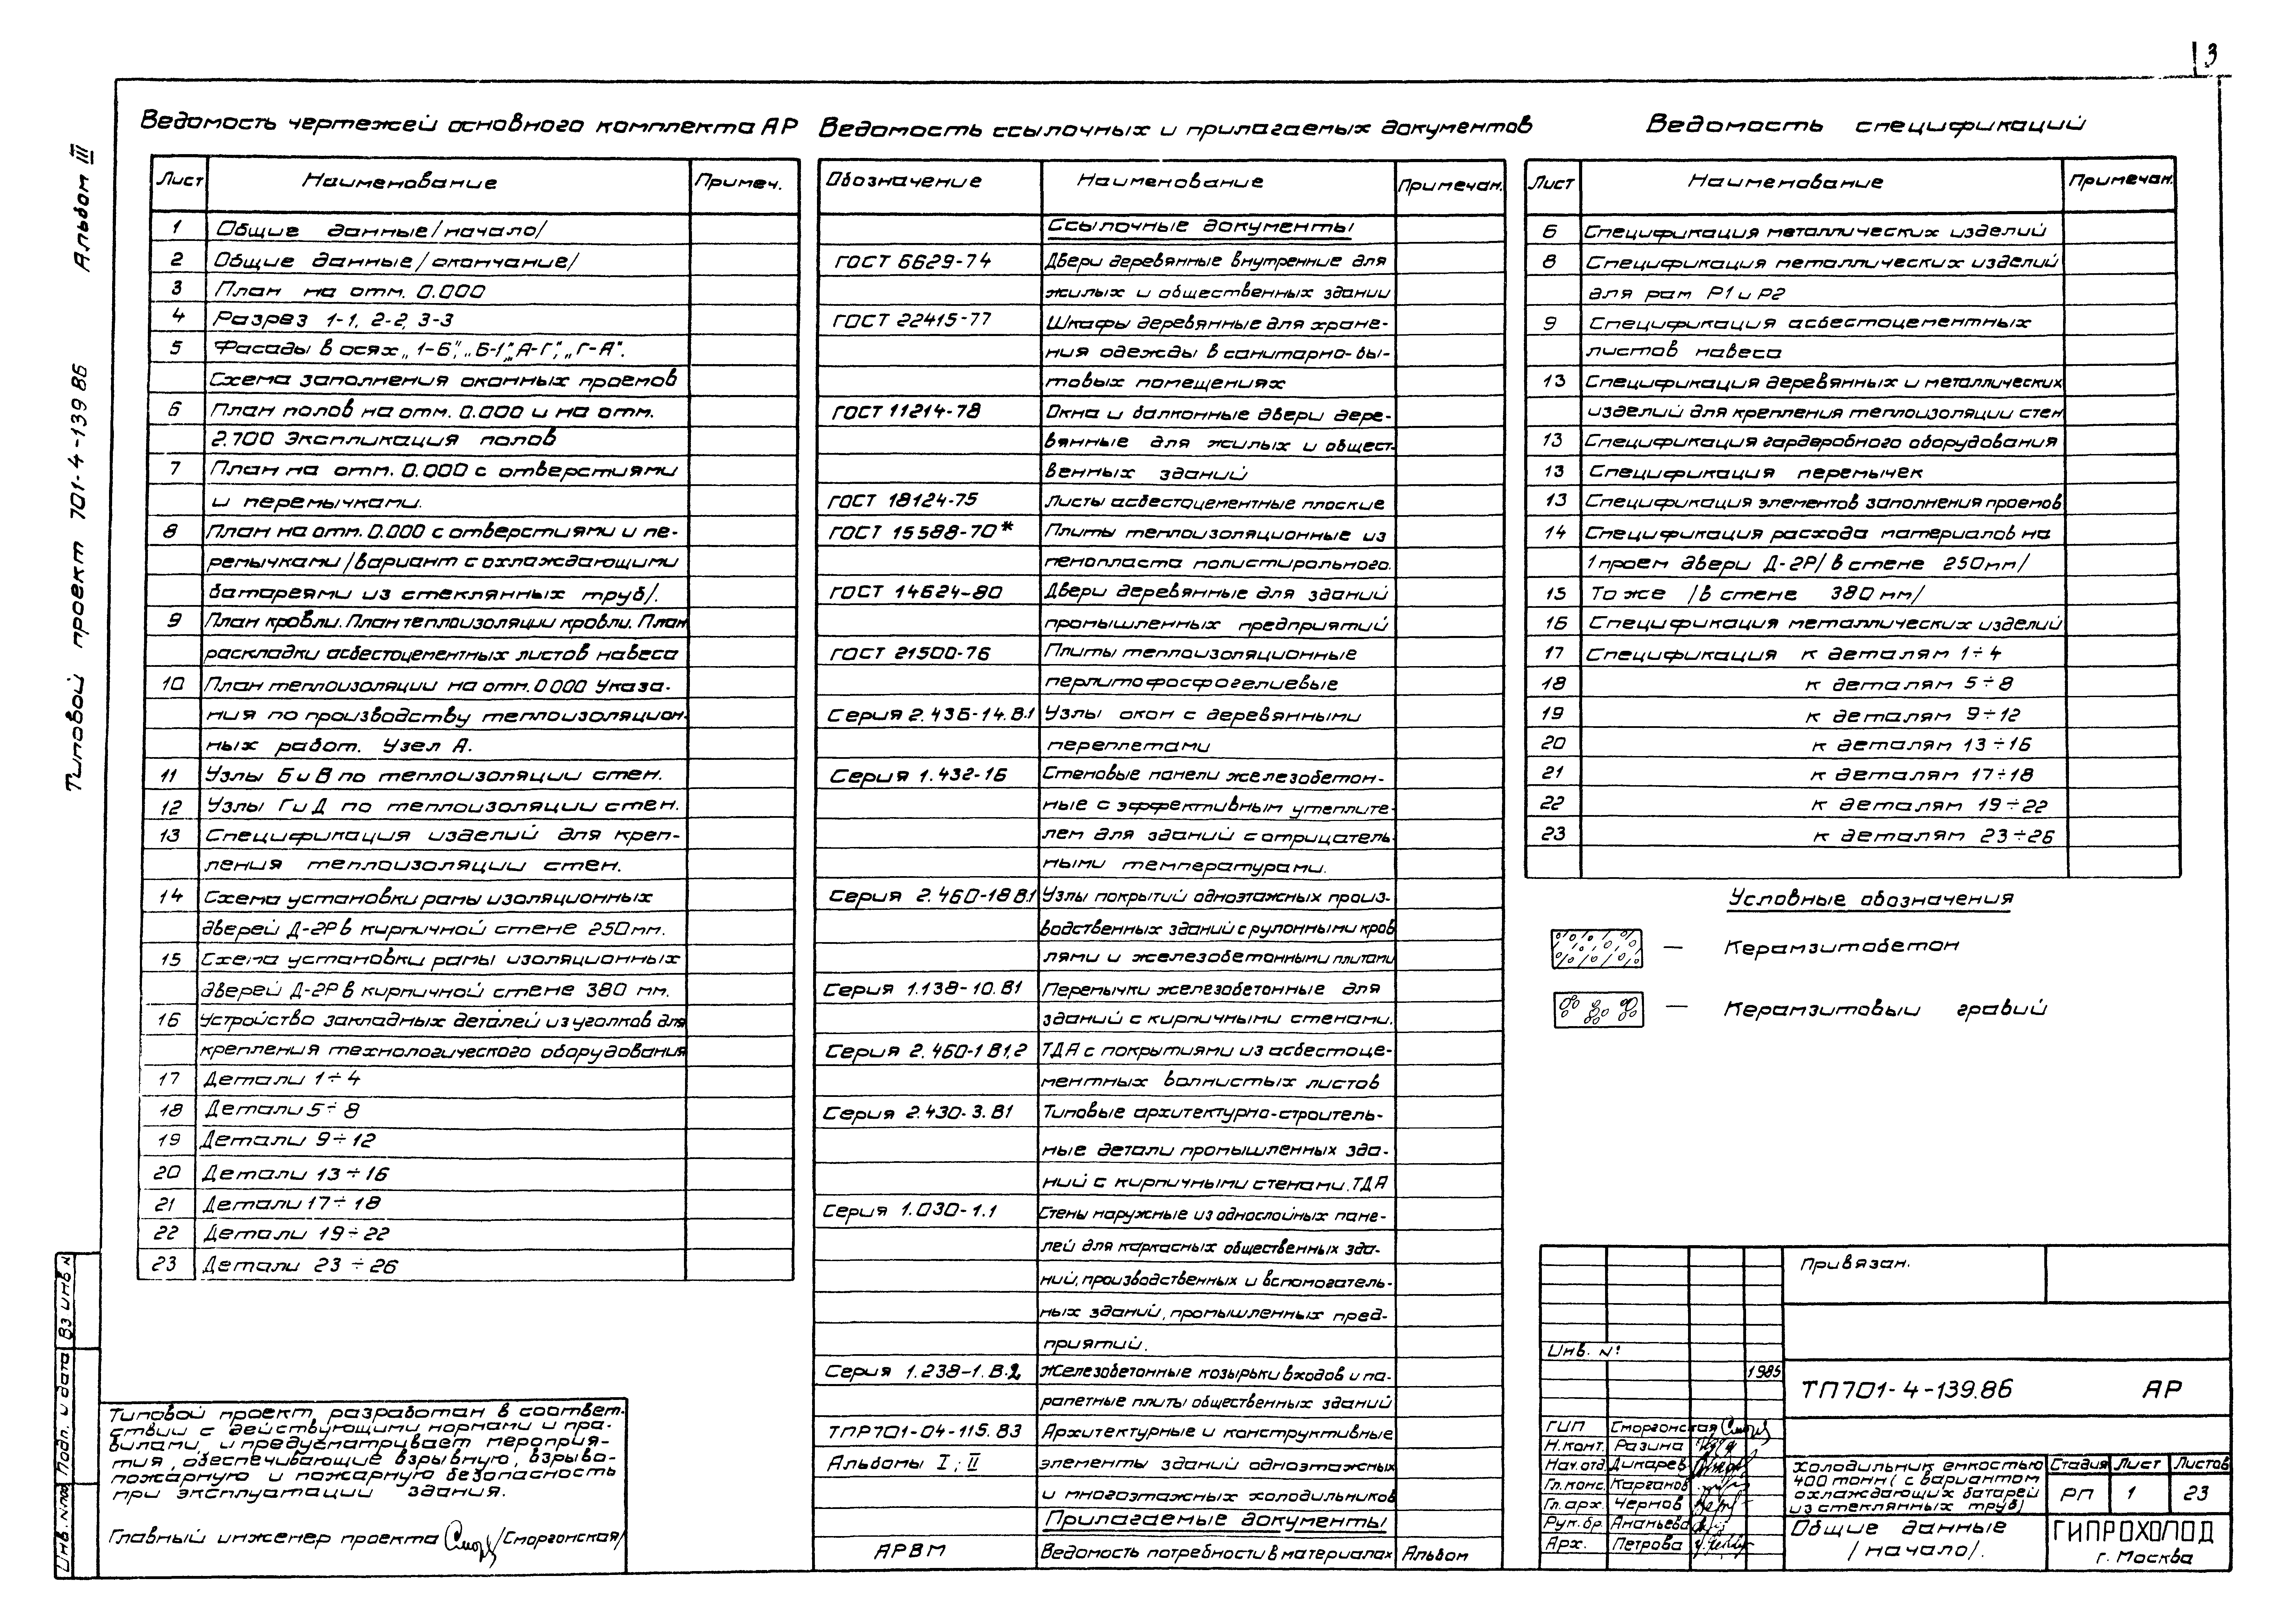 3
Альбом III
Типовой проект 701-4-139 86
Ведомость чертежей основного комплекта АР
Лист Наименование Примеч.
1 Общие данные /начало/
2 Общие данные /окончание/
3 План на отм. 0.000
4 Разрез 1-1, 2-2, 3-3
5 Фасады в осях „1-6", „6-1", „А-Г", „Г-А".
Схема заполнения оконных проемов
6 План полов на отм. 0.000 и на отм.
2.700 Экспликация полов
7 План на отм. 0.000 с отверстиями
и перемычками.
8 План на отм. 0.000 с отверстиями и пе-
ремычками /вариант с охлаждающими
батареями из стеклянных труб/.
9 План кровли. План теплоизоляции кровли. План
раскладки асбестоцементных листов навеса
10 План теплоизоляции на отм. 0 000 Указа-
ния по производству теплоизоляцион-
ных работ. Узел А.
11 Узлы Б и В по теплоизоляции стен.
12 Узлы Г и Д по теплоизоляции стен.
13 Спецификация изделий для креп-
ления теплоизоляции стен.
14 Схема установки рамы изоляционных
дверей Д-2Р в кирпичной стене 250мм.
15 Схема установки рамы изоляционных
дверей Д-2Р в кирпичной стене 380 мм.
16 Устройство закладных деталей из уголков для
крепления технологического оборудования
17 Детали 1÷4
18 Детали 5÷8
19 Детали 9÷12
20 Детали 13÷16
21 Детали 17÷18
22 Детали 19÷22
23 Детали 23÷26
Типовой проект разработан в соответ-
ствии с действующими нормами и пра-
вилами и предусматривает мероприя-
тия, обеспечивающие взрывную, взрыво-
пожарную и пожарную безопасность
при эксплуатации здания.
Главный инженер проекта /Сморгонская/
Ведомость ссылочных и прилагаемых документов
Обозначение Наименование Примечан.
Ссылочные документы
ГОСТ 6629-74 Двери деревянные внутренние для
жилых и общественных зданий
ГОСТ 22415-77 Шкафы деревянные для хране-
ния одежды в санитарно-бы-
товых помещениях
ГОСТ 11214-78 Окна и балконные двери дере-
вянные для жилых и общест-
венных зданий
ГОСТ 18124-75 Листы асбестоцементные плоские
ГОСТ 15588-70* Плиты теплоизоляционные из
пенопласта полистирольного.
ГОСТ 14624-80 Двери деревянные для зданий
промышленных предприятий
ГОСТ 21500-76 Плиты теплоизоляционные
перлитофосфогелиевые
Серия 2.436-14.В.1 Узлы окон с деревянными
переплетами
Серия 1.432-16 Стеновые панели железобетон-
ные с эффективным утеплите-
лем для зданий с отрицатель-
ными температурами.
Серия 2.460-18 В1 Узлы покрытий одноэтажных произ-
водственных зданий с рулонными кров
лями и железобетонными плитами
Серия 1.138-10.В1 Перемычки железобетонные для
зданий с кирпичными стенами.
Серия 2.460-1 В1,2 ТДА с покрытиями из асбестоце-
ментных волнистых листов
Серия 2.430-3.В1 Типовые архитектурно-строитель-
ные детали промышленных зда-
ний с кирпичными стенами. ТДА
Серия 1.030-1.1 Стены наружные из однослойных пане-
лей для каркасных общественных зда-
ний, производственных и вспомогатель-
ных зданий, промышленных пред-
приятий.
Серия 1.238-1.В.2 Железобетонные козырьки входов и па-
рапетные плиты общественных зданий
ТПР701-04-115.83 Архитектурные и конструктивные
Альбомы I; II элементы зданий одноэтажных
и многоэтажных холодильников
Прилагаемые документы
АРВМ Ведомость потребности в материалах Альбом
Ведомость спецификаций
Лист Наименование Примечан.
6 Спецификация металлических изделий
8 Спецификация металлических изделий
для рам Р1 и Р2
9 Спецификация асбестоцементных
листов навеса
13 Спецификация деревянных и металлических
изделий для крепления теплоизоляции стен
13 Спецификация гардеробного оборудования
13 Спецификация перемычек
13 Спецификация элементов заполнения проемов
14 Спецификация расхода материалов на
1 проем двери Д-2Р /в стене 250мм/
15 То же /в стене 380 мм/
16 Спецификация металлических изделий
17 Спецификация к деталям 1÷4
18 к деталям 5÷8
19 к деталям 9÷12
20 к деталям 13÷16
21 к деталям 17÷18
22 к деталям 19÷22
23 к деталям 23÷26
Условные обозначения
— Керамзитобетон
— Керамзитовый гравий
Привязан.
Инв. №
1985
ТП701-4-139.86 АР
ГИП Сморгонская
Н.конт. Разина
Нач.отд. Дикарев
Гл.конс. Карганов
Гл.арх. Чернов
Рук.бр. Ананьева
Арх. Петрова
Холодильник емкостью
400 тонн (с вариантом
охлаждающих батарей
из стеклянных труб)
Стадия Лист Листов
РП 1 23
Общие данные
/начало/.
ГИПРОХОЛОД
г. Москва
Инв. № под Подп. и дата Вз инв №